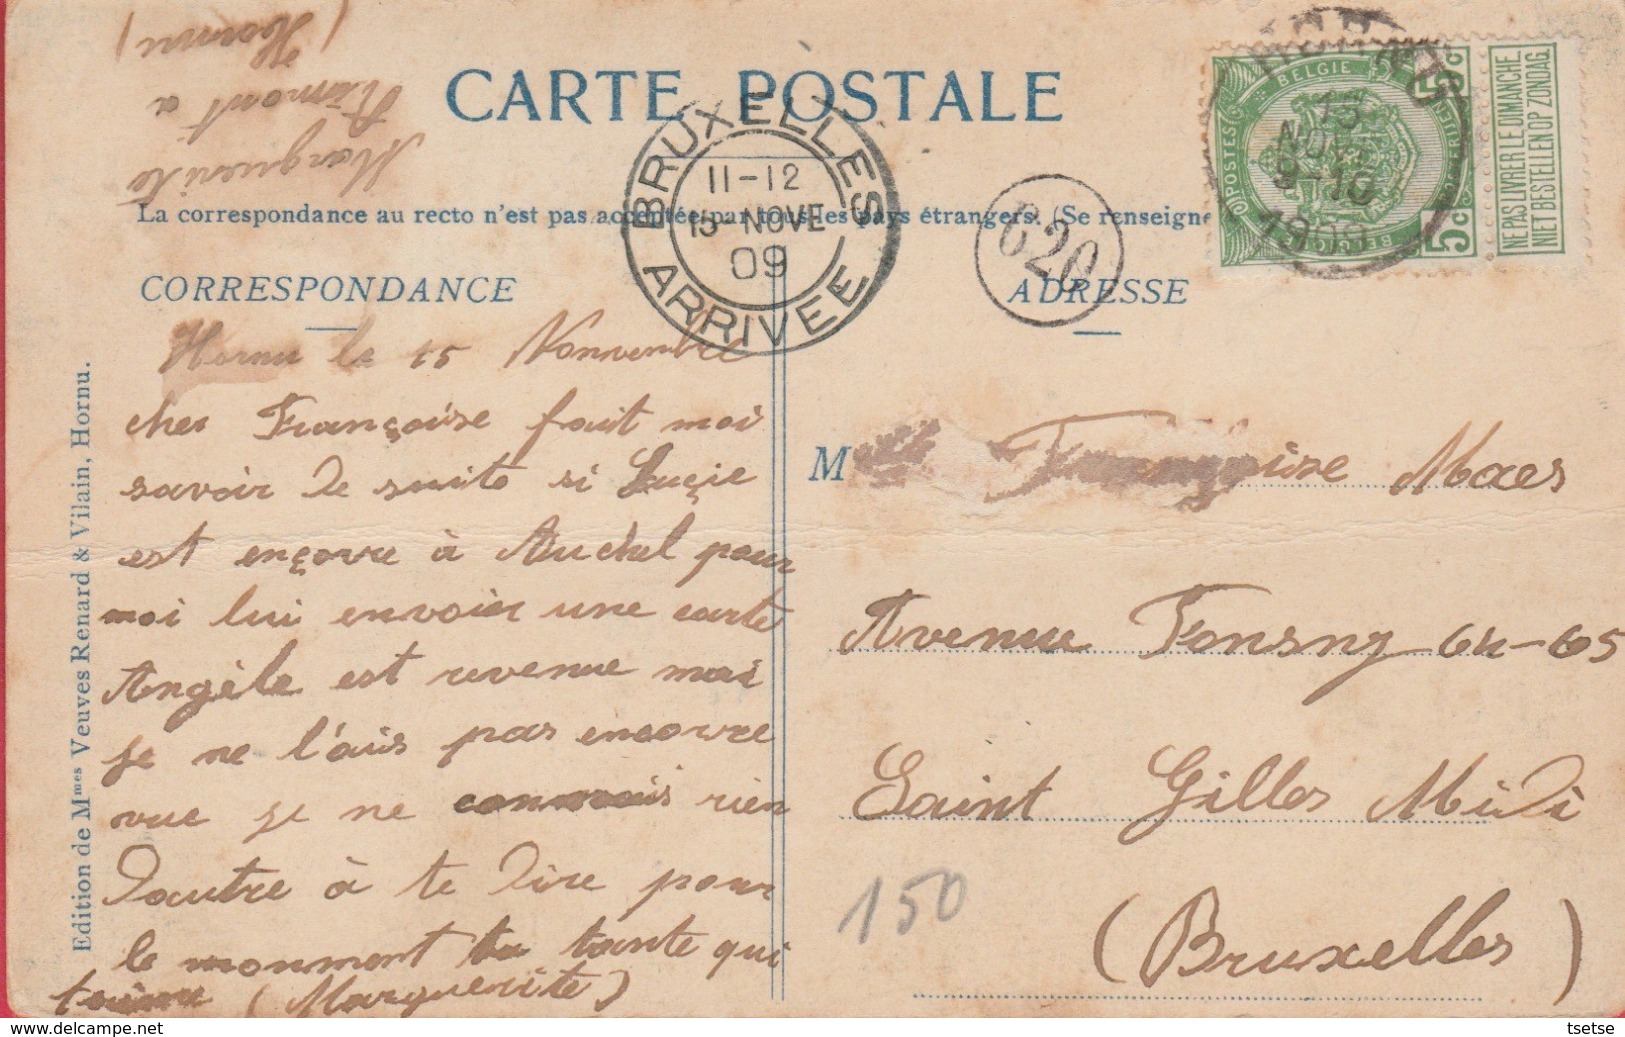 Marguerite
Rimont a
(Hornu)
CARTE POSTALE
La correspondance au recto n'est pas acceptée par tous les pays étrangers. (Se renseigne
BRUXELLES
11-12
15 NOVE
09
ARRIVEE
620
HORNU
15
NOV
9-10
1909
BELGIE
POSTES
BELGIQUE
5c
5c
NE PAS LIVRER LE DIMANCHE
NIET BESTELLEN OP ZONDAG
CORRESPONDANCE
ADRESSE
Hornu le 15 Nonvembre
cher Françoise fait moi
savoir de suite si Luçie
est ençovre à Auchel pour
moi lui envoier une carte
Angèle est revenue mai
je ne l'ais pas encovre
vue je ne connais rien
dautre à te dire pour
le monment ta tante qui
(Marguerite)
M Françoise Maes
Avenue Fonsny 64-65
Saint Gilles Midi
(Bruxelles)
150
Edition de Mmes Veuves Renard & Vilain, Hornu.
tsetse - delcampe.net